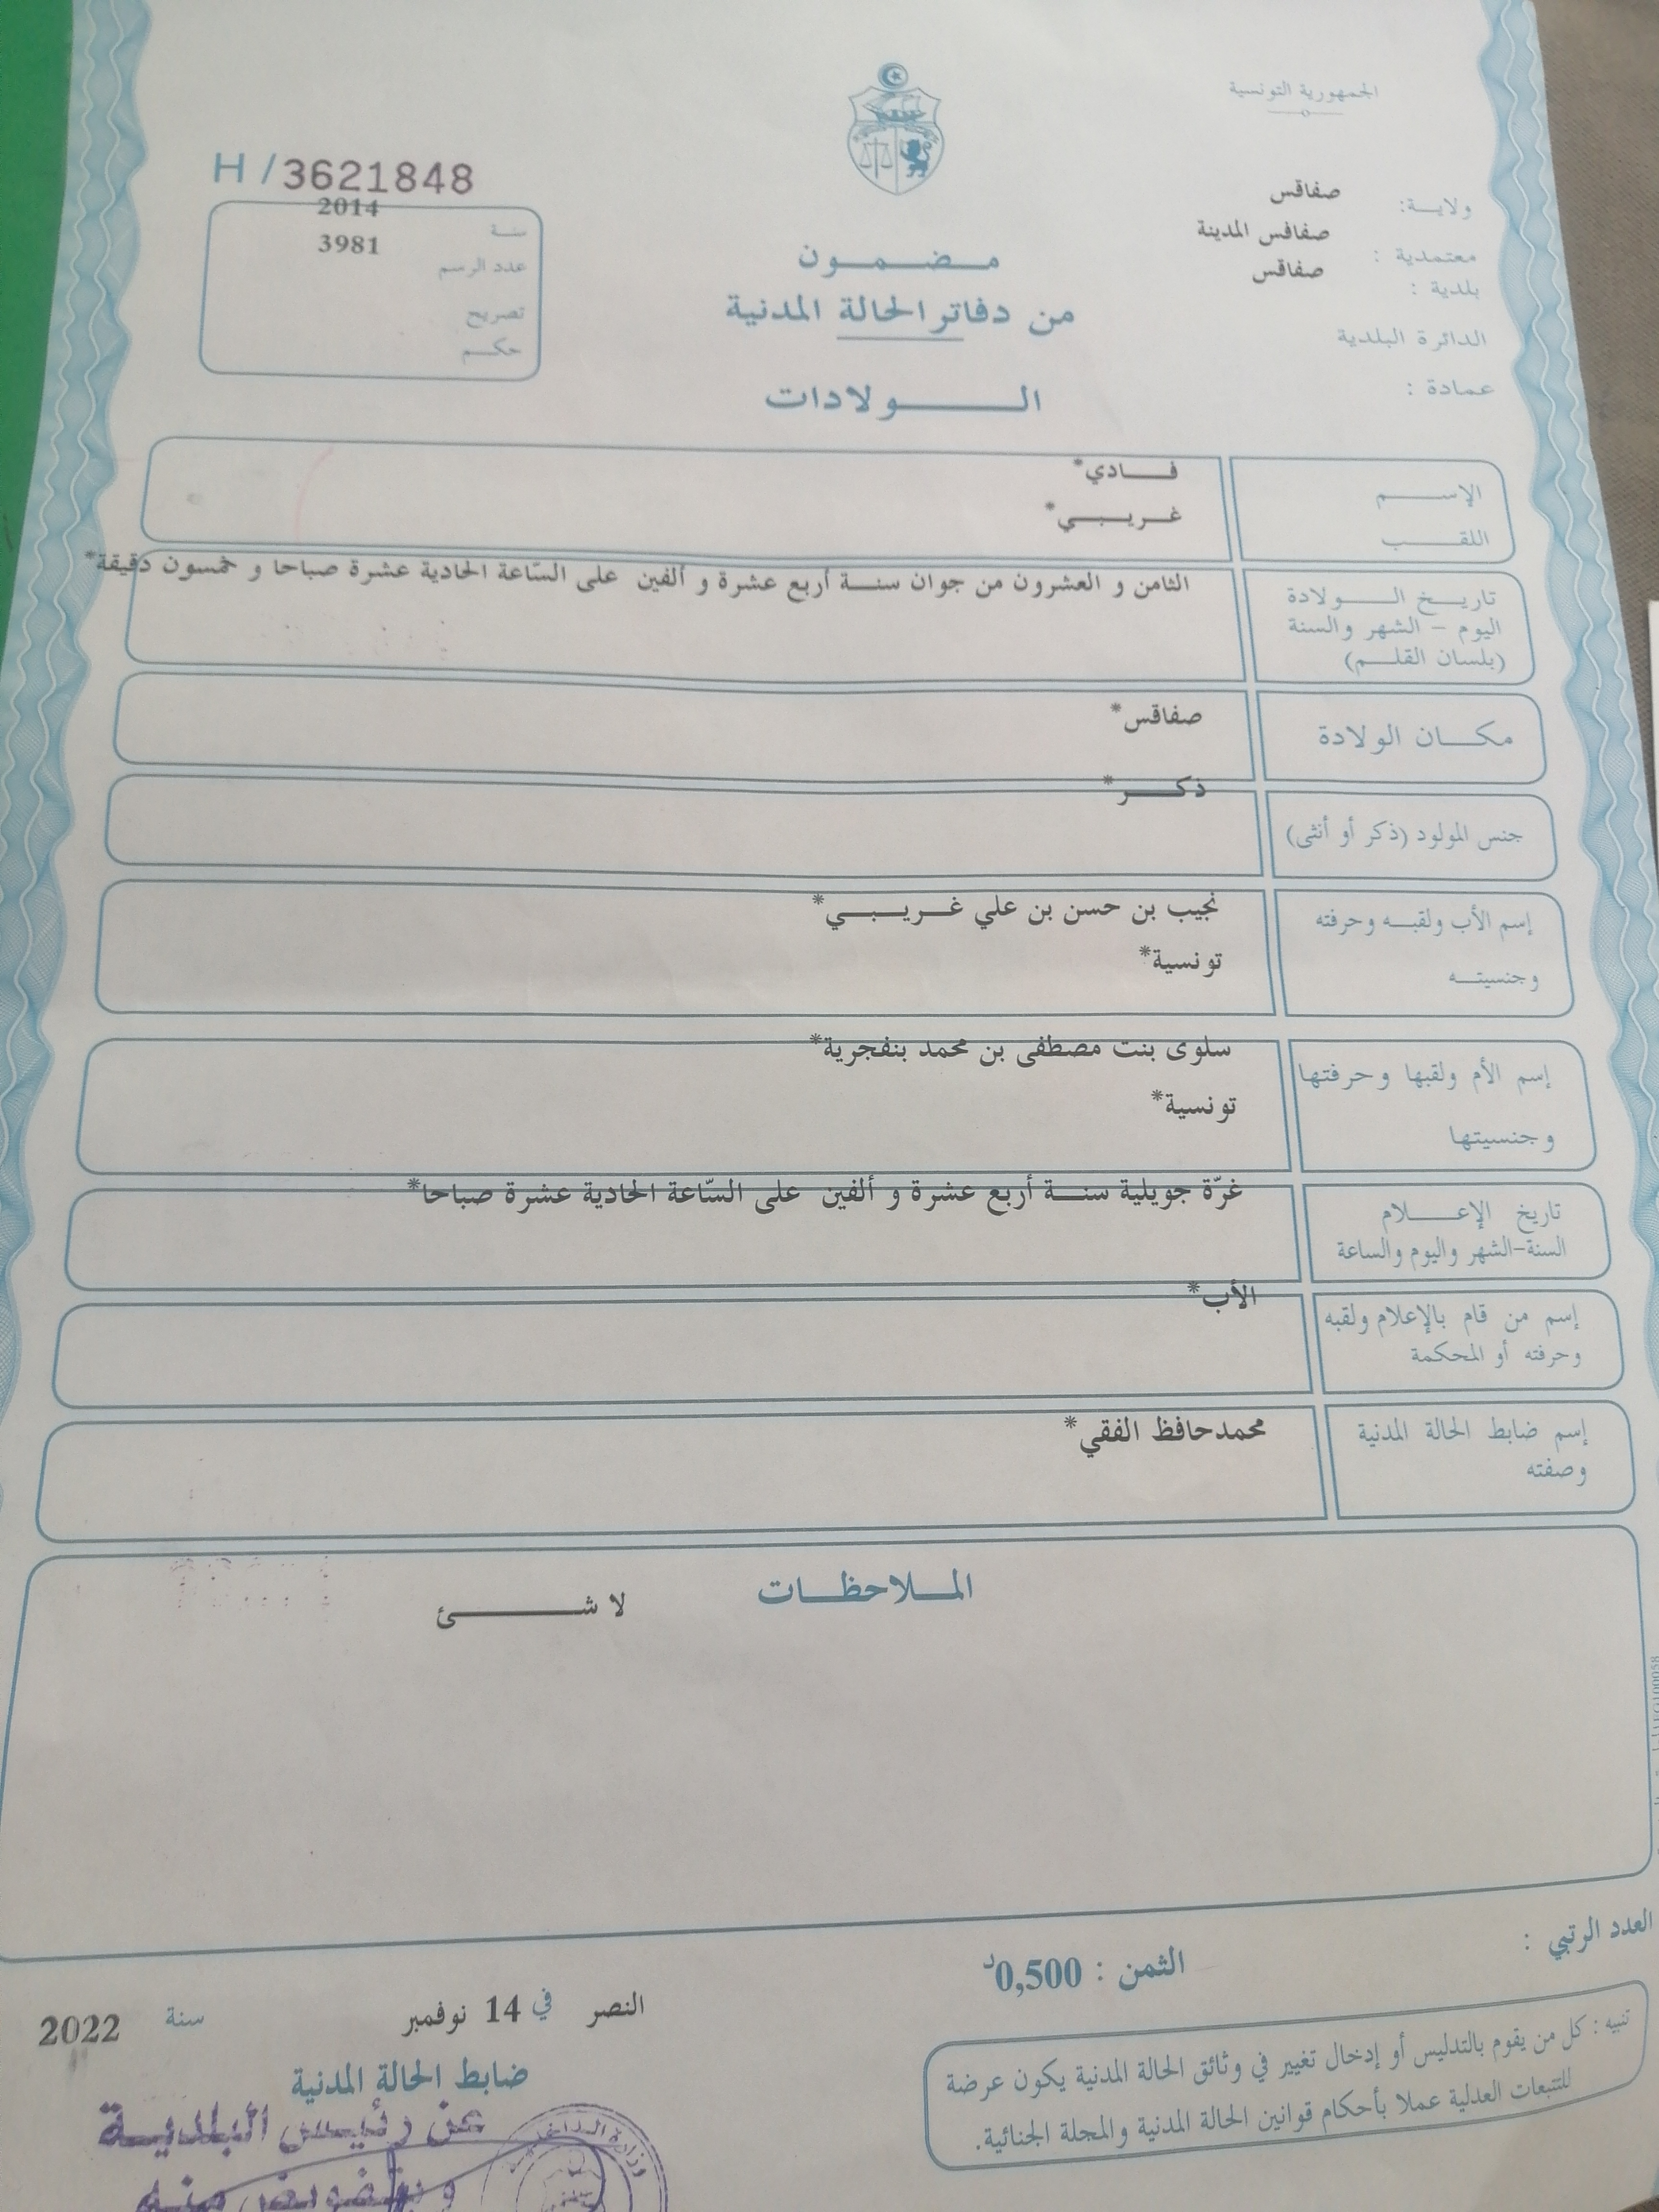 الجمهورية التونسية
ولاية: صفاقس
معتمدية : صفاقس المدينة
بلدية : صفاقس
الدائرة البلدية
عمادة :
H / 3621848
سنة 2014
عدد الرسم 3981
تصريح
حكم
مضمون
من دفاتر الحالة المدنية
الولادات
الإسم فادي*
اللقب غريبي*
تاريخ الولادة
اليوم – الشهر والسنة
(بلسان القلم)
الثامن و العشرون من جوان سنة أربع عشرة و ألفين على السّاعة الحادية عشرة صباحا و خمسون دقيقة*
مكان الولادة صفاقس*
جنس المولود (ذكر أو أنثى) ذكر*
إسم الأب ولقبه وحرفته
وجنسيته
نجيب بن حسن بن علي غريبي*
تونسية*
إسم الأم ولقبها وحرفتها
وجنسيتها
سلوى بنت مصطفى بن محمد بنفجرية*
تونسية*
تاريخ الإعلام
السنة-الشهر واليوم والساعة
غرّة جويلية سنة أربع عشرة و ألفين على السّاعة الحادية عشرة صباحا*
إسم من قام بالإعلام ولقبه
وحرفته أو المحكمة
الأب*
إسم ضابط الحالة المدنية
وصفته
محمدحافظ الفقي*
الملاحظات
لا شئ
العدد الرتبي :
الثمن : 0,500د
تنبيه : كل من يقوم بالتدليس أو إدخال تغيير في وثائق الحالة المدنية يكون عرضة
للتتبعات العدلية عملا بأحكام قوانين الحالة المدنية والمجلة الجنائية.
النصر في 14 نوفمبر سنة 2022
ضابط الحالة المدنية
عن رئيس البلدية
وبتفويض منه
وزارة الداخلية